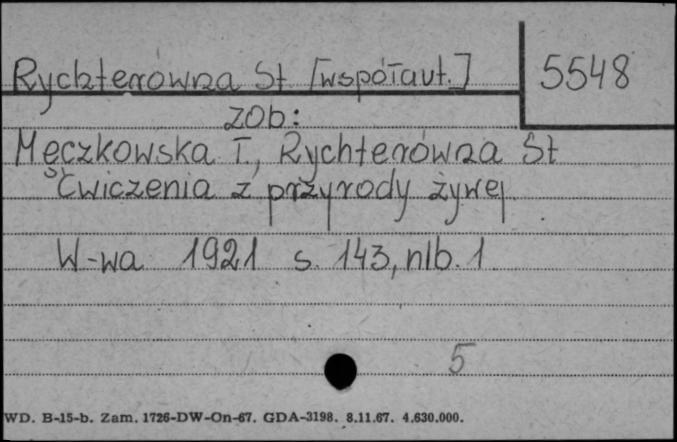 Rychterówna St [współaut.] 5548
zob:
Męczkowska T., Rychterówna St
Ćwiczenia z przyrody żywej
W-wa 1921 s. 143, nlb. 1
5
WD. B-15-b. Zam. 1726-DW-On-67. GDA-3198. 8.11.67. 4.630.000.